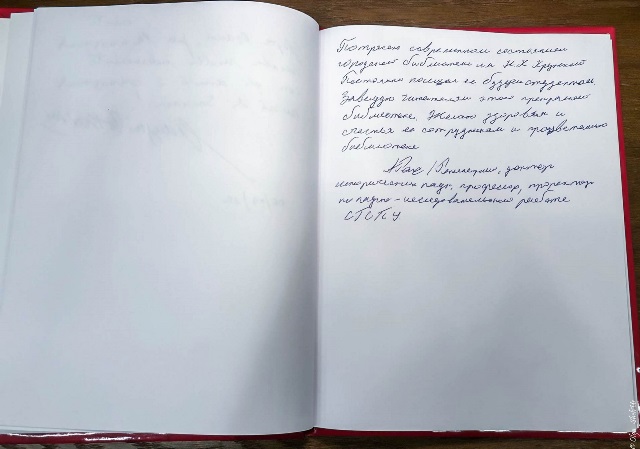 Потрясен современным состоянием
городской библиотеки им. Н.К. Крупской
Постоянно посещал ее будучи студентом.
Завидую читателям этой прекрасной
библиотеки. Желаю здоровья и
счастья ее сотрудникам и процветания
библиотеке
доктор
исторических наук, профессор, проректор
по научно-исследовательской работе